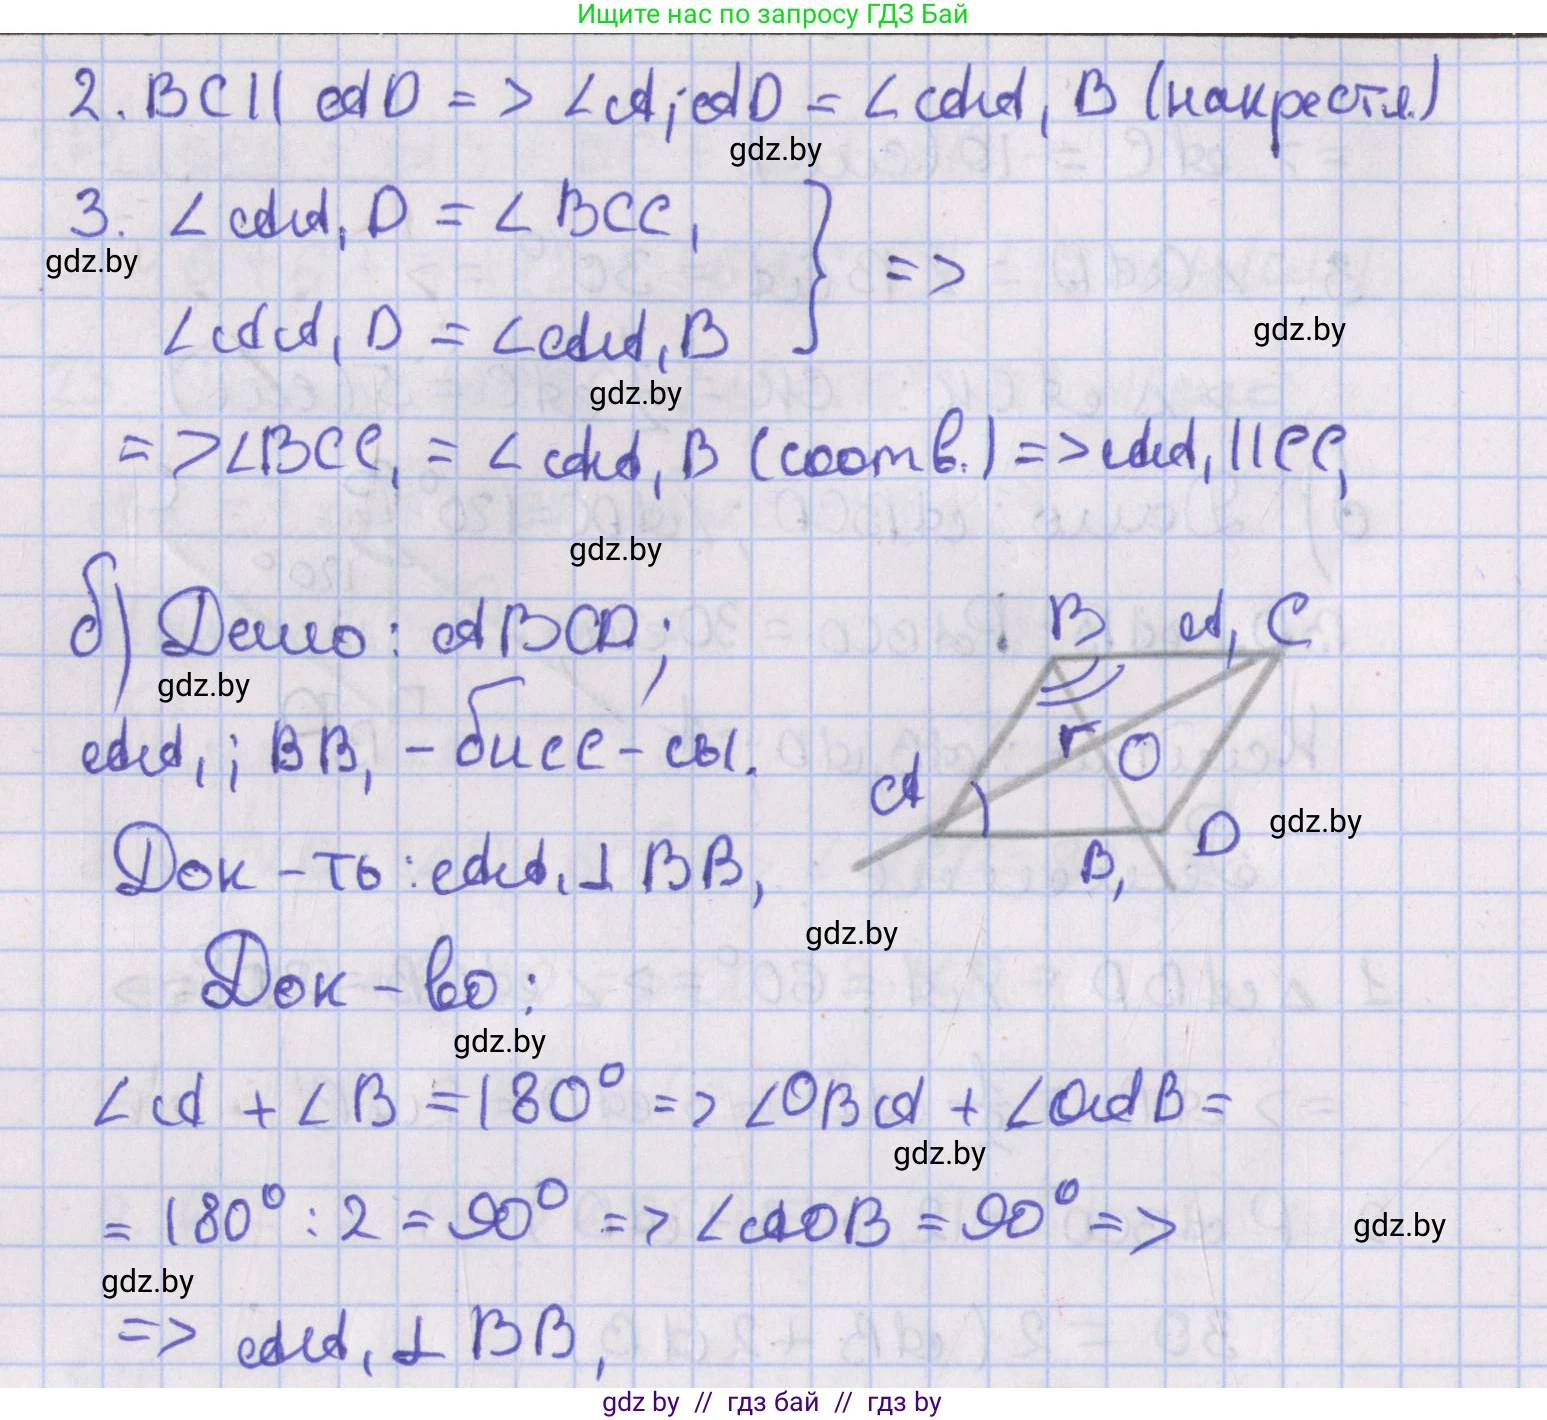 Ищите нас по запросу ГДЗ Бай
2. BC || AD => ∠A₁AD = ∠AA₁B (накрестл.)
gdz.by
3. ∠AA₁D = ∠BCC₁
gdz.by
} =>
∠AA₁D = ∠AA₁B
gdz.by
gdz.by
=> ∠BCC₁ = ∠AA₁B (соотв.) => AA₁ || CC₁
gdz.by
б) Дано: ABCD;
gdz.by
AA₁; BB₁ - бисс-сы.
B A₁ C
O
A
gdz.by
B₁ D
Док-ть: AA₁ ⊥ BB₁
gdz.by
Док-во:
gdz.by
∠A + ∠B = 180° => ∠OBA + ∠OAB =
gdz.by
= 180° : 2 = 90° => ∠AOB = 90° =>
gdz.by
gdz.by
=> AA₁ ⊥ BB₁
gdz by // гдз бай // гдз by